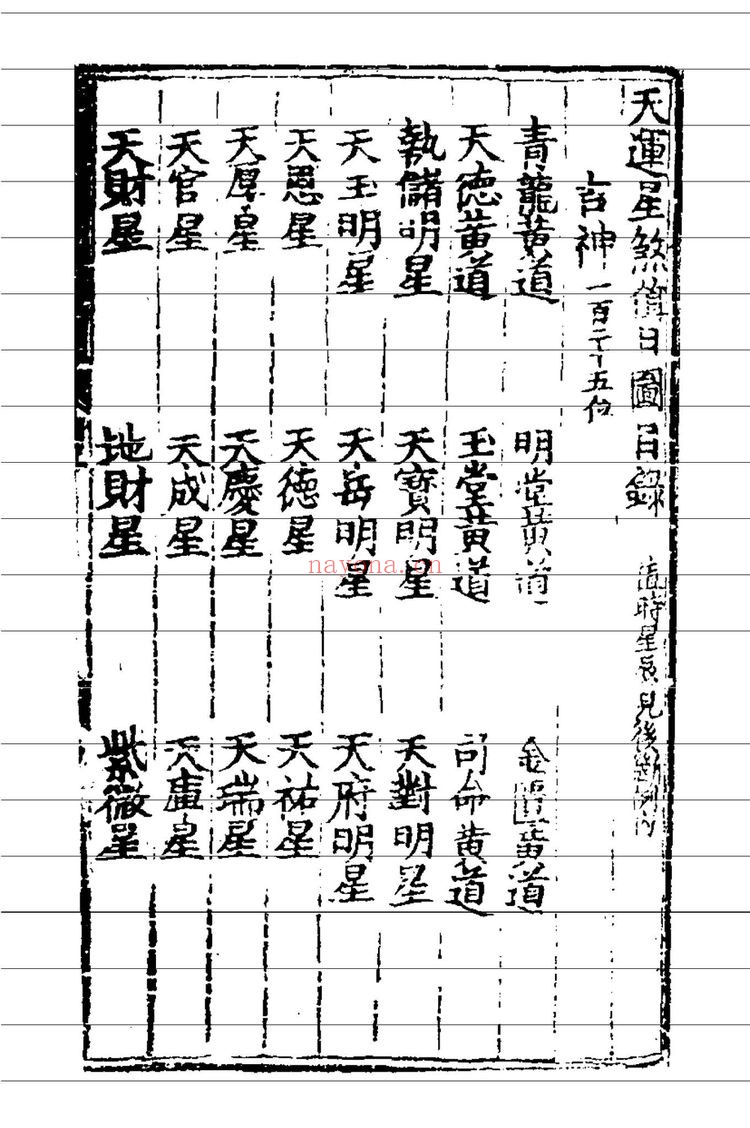 天運星煞值日圖目錄 值時星辰見後斷例內
吉神 一百二十五位
青龍黃道 明堂黃道 金匱黃道
天德黃道 玉堂黃道 司命黃道
執儲明星 天寶明星 天對明星
天玉明星 天岳明星 天府明星
天恩星 天德星 天祐星
天厚星 天慶星 天瑞星
天官星 天成星 天庫星
天財星 地財星 紫微星
nayona.cn